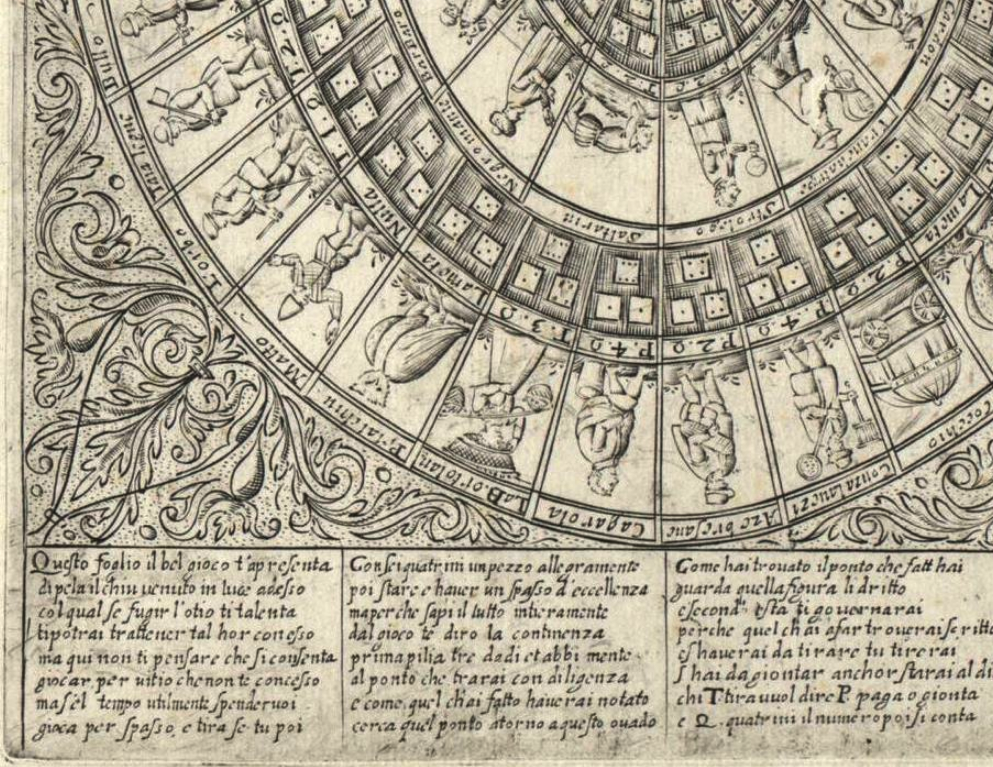 Bullo
Taia legne
Loihbo
Matto
La Bortolan
Cagarola
Cocchio
Negromante
Sallarin
Strolego
Nuda
Lameta
T 3 Q
P 4 Q
P 2 Q
P. 4. Q
P. 2. Q
Questo foglio il bel gioco t'apresenta
di pela il chiu venuto in luce adesso
col qual se fugir l'otio ti talenta
ti potrai trattener tal hor con esso
ma qui non ti pensare che si consenta
giocar per vitio che non te concesso
ma s'el tempo utilmente spender voi
gioca per spasso e tira se tu poi
Con sei quatrini un pezzo allegramente
poi stare e haver un spasso d'eccellenza
ma perche sapi il tutto intieramente
dal gioco te diro la continenza
prima pilia tre dadi et abbi mente
al ponto che trarai con diligenza
e come quel ch'ai fatto haverai notato
cerca quel ponto atorno a questo ovado
Come hai trovato il ponto che fatt' hai
guarda quella figura li dritto
e second' esta ti governarai
perche quel ch'ai afar troverai scritto
e s'haverai da tirare tu tirerai
s'hai da giontar anchor starai al di
chi T. tira vuol dire P. paga o gionta
e Q. quatrini il numero poi si conta